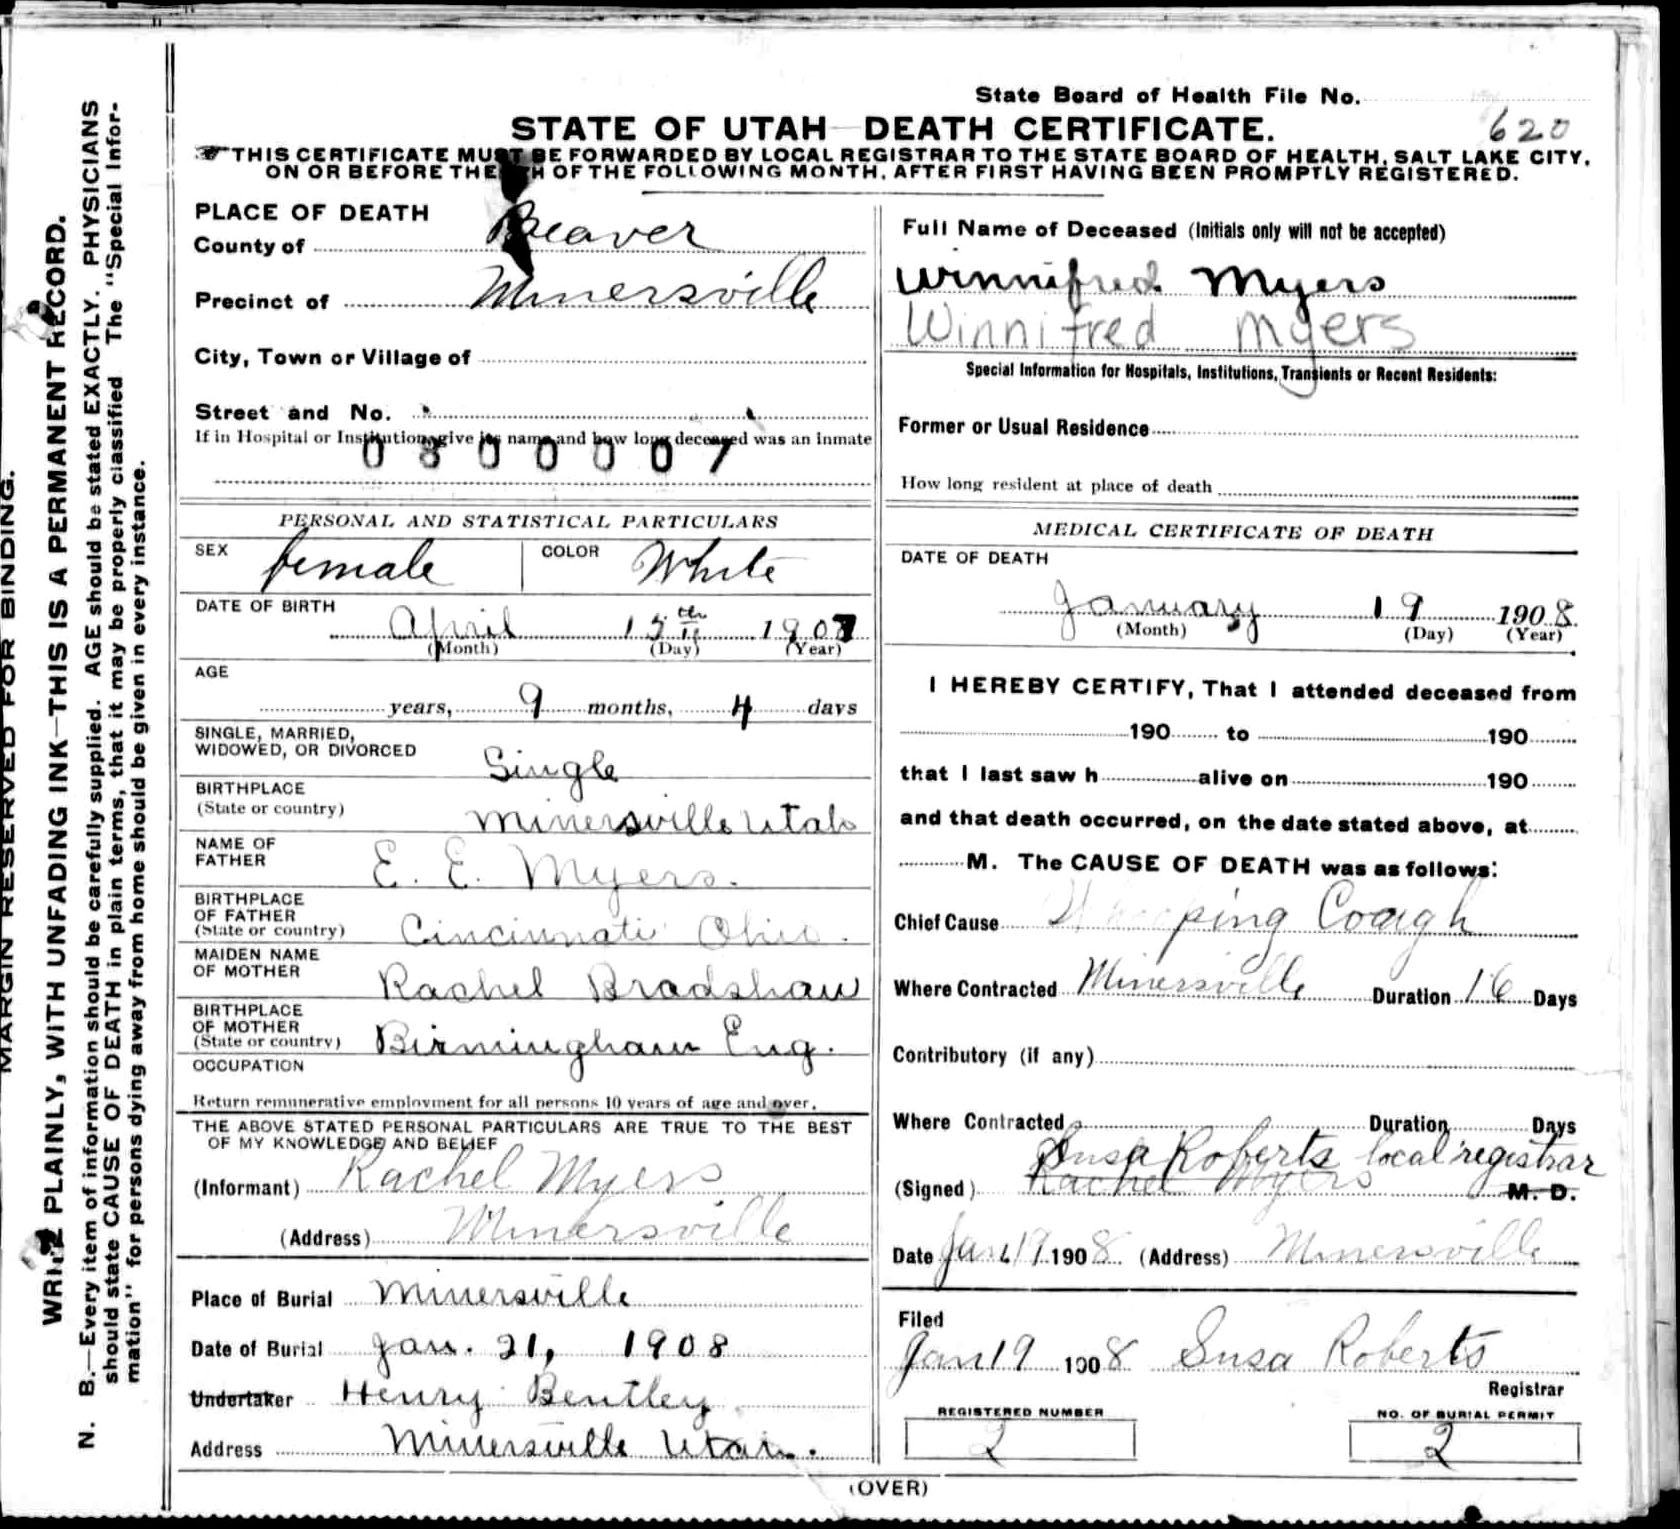 MARGIN RESERVED FOR BINDING.
WRITE PLAINLY, WITH UNFADING INK—THIS IS A PERMANENT RECORD.
N. B.—Every item of information should be carefully supplied. AGE should be stated EXACTLY. PHYSICIANS
should state CAUSE OF DEATH in plain terms, that it may be properly classified The "Special Infor-
mation" for persons dying away from home should be given in every instance.
State Board of Health File No.
620
STATE OF UTAH—DEATH CERTIFICATE.
☞THIS CERTIFICATE MUST BE FORWARDED BY LOCAL REGISTRAR TO THE STATE BOARD OF HEALTH, SALT LAKE CITY,
ON OR BEFORE THE TH OF THE FOLLOWING MONTH, AFTER FIRST HAVING BEEN PROMPTLY REGISTERED.
PLACE OF DEATH
County of Beaver
Precinct of Minersville
City, Town or Village of
Street and No.
If in Hospital or Institution, give its name and how long deceased was an inmate
0800007
PERSONAL AND STATISTICAL PARTICULARS
SEX female COLOR White
DATE OF BIRTH
April 15th 1907
(Month) (Day) (Year)
AGE
years, 9 months, 4 days
SINGLE, MARRIED,
WIDOWED, OR DIVORCED Single
BIRTHPLACE
(State or country) Minersville Utah
NAME OF
FATHER E. E. Myers.
BIRTHPLACE
OF FATHER
(State or country) Cincinnati Ohio.
MAIDEN NAME
OF MOTHER Rachel Bradshaw
BIRTHPLACE
OF MOTHER
(State or country) Birmingham Eng.
OCCUPATION
Return remunerative employment for all persons 10 years of age and over.
THE ABOVE STATED PERSONAL PARTICULARS ARE TRUE TO THE BEST
OF MY KNOWLEDGE AND BELIEF
(Informant) Rachel Myers
(Address) Minersville
Place of Burial Minersville
Date of Burial Jan. 21, 1908
Undertaker Henry Bentley
Address Minersville Utah.
Full Name of Deceased (Initials only will not be accepted)
Winnifred Myers
Winnifred Myers
Special Information for Hospitals, Institutions, Transients or Recent Residents:
Former or Usual Residence
How long resident at place of death
MEDICAL CERTIFICATE OF DEATH
DATE OF DEATH
January 19 1908
(Month) (Day) (Year)
I HEREBY CERTIFY, That I attended deceased from
190 to 190
that I last saw h alive on 190
and that death occurred, on the date stated above, at
M. The CAUSE OF DEATH was as follows:
Chief Cause Whooping Coagh
Where Contracted Minersville Duration 16 Days
Contributory (if any)
Where Contracted Duration Days
Susa Roberts local registrar
(Signed) Rachel Myers M. D.
Date Jan 19 1908 (Address) Minersville
Filed
Jan 19 1908 Susa Roberts
Registrar
REGISTERED NUMBER
2
NO. OF BURIAL PERMIT
2
(OVER)